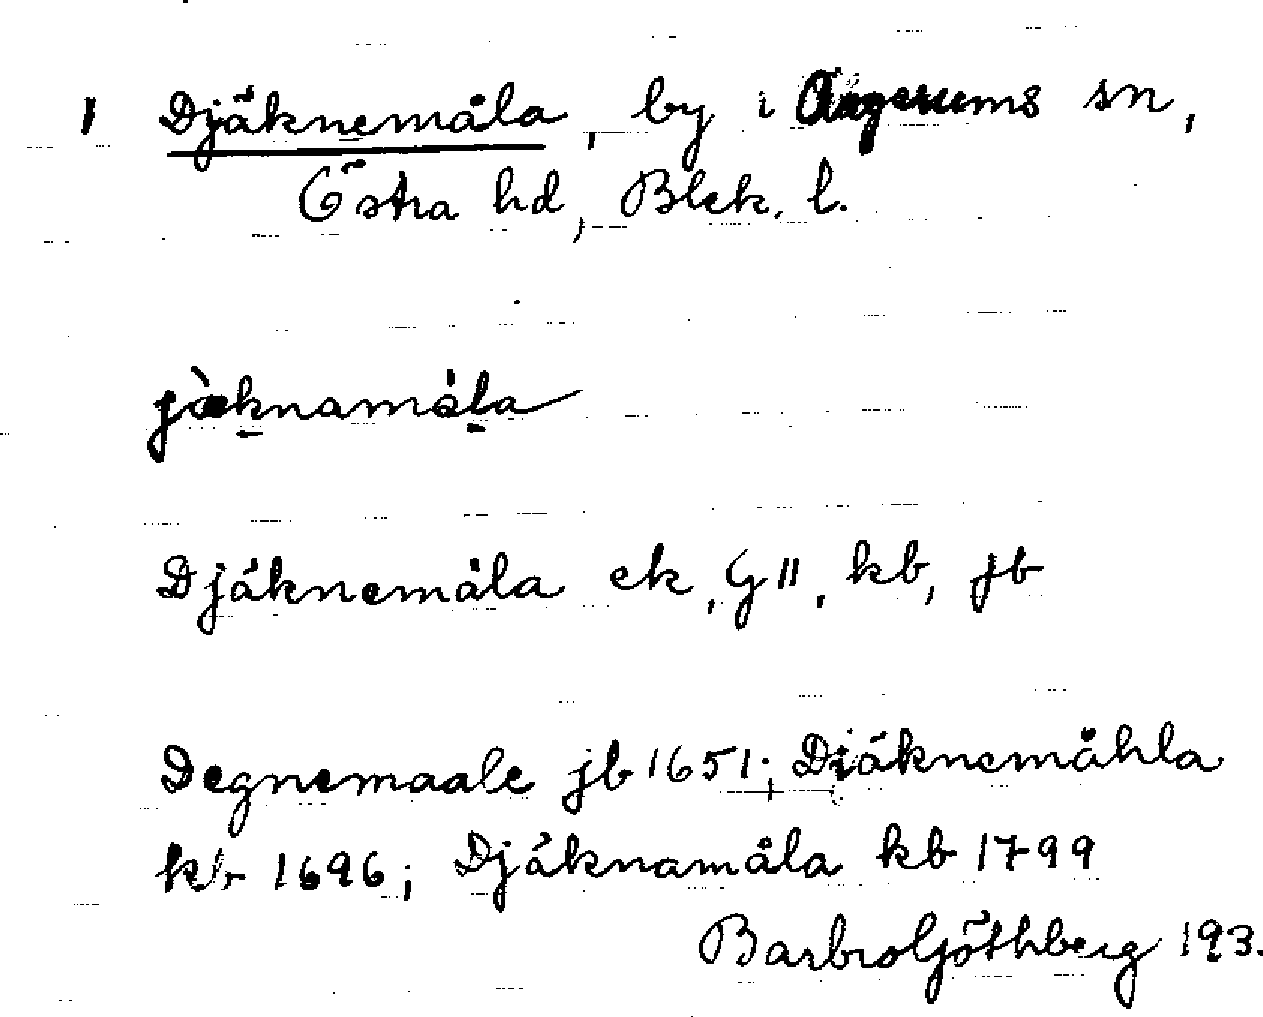 1 Djäknemåla, by i Augerums sn,
Östra hd, Blek. l.
jæ̀knamåla
Djäknemåla ek, G II, kb, jb
Degnemaale jb 1651; Diäknemåhla
kb 1696; Djäknamåla kb 1799
Barbro Göthberg 193.